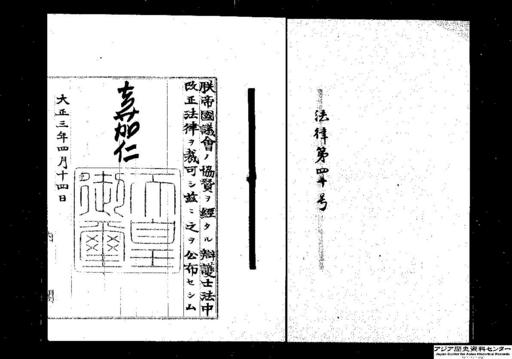 法律第四十号
朕帝國議會ノ協賛ヲ經タル辯護士法中
改正法律ヲ裁可シ茲ニ之ヲ公布セシム
嘉仁
天皇
御璽
大正三年四月十四日
アジア歴史資料センター
Japan Center for Asian Historical Records